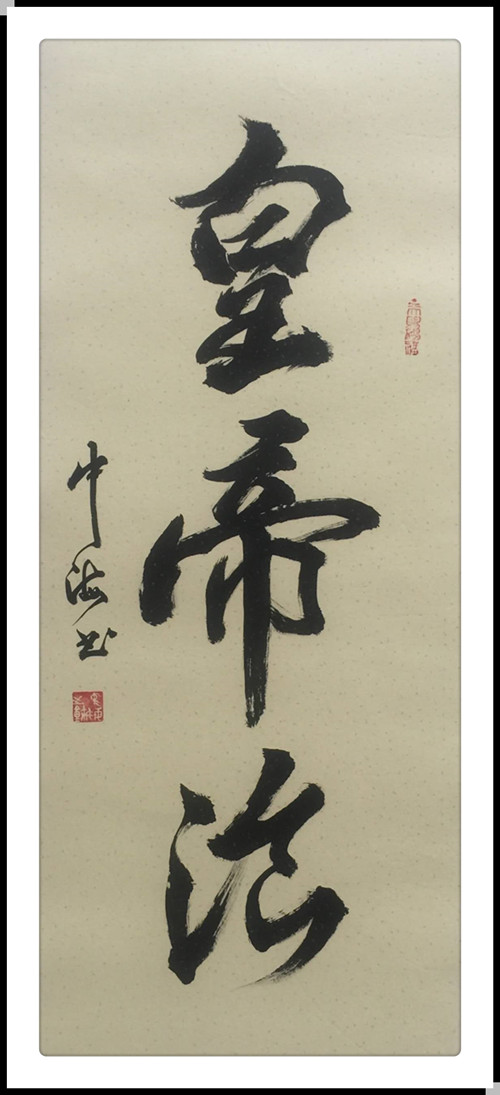 皇帝治
中海书